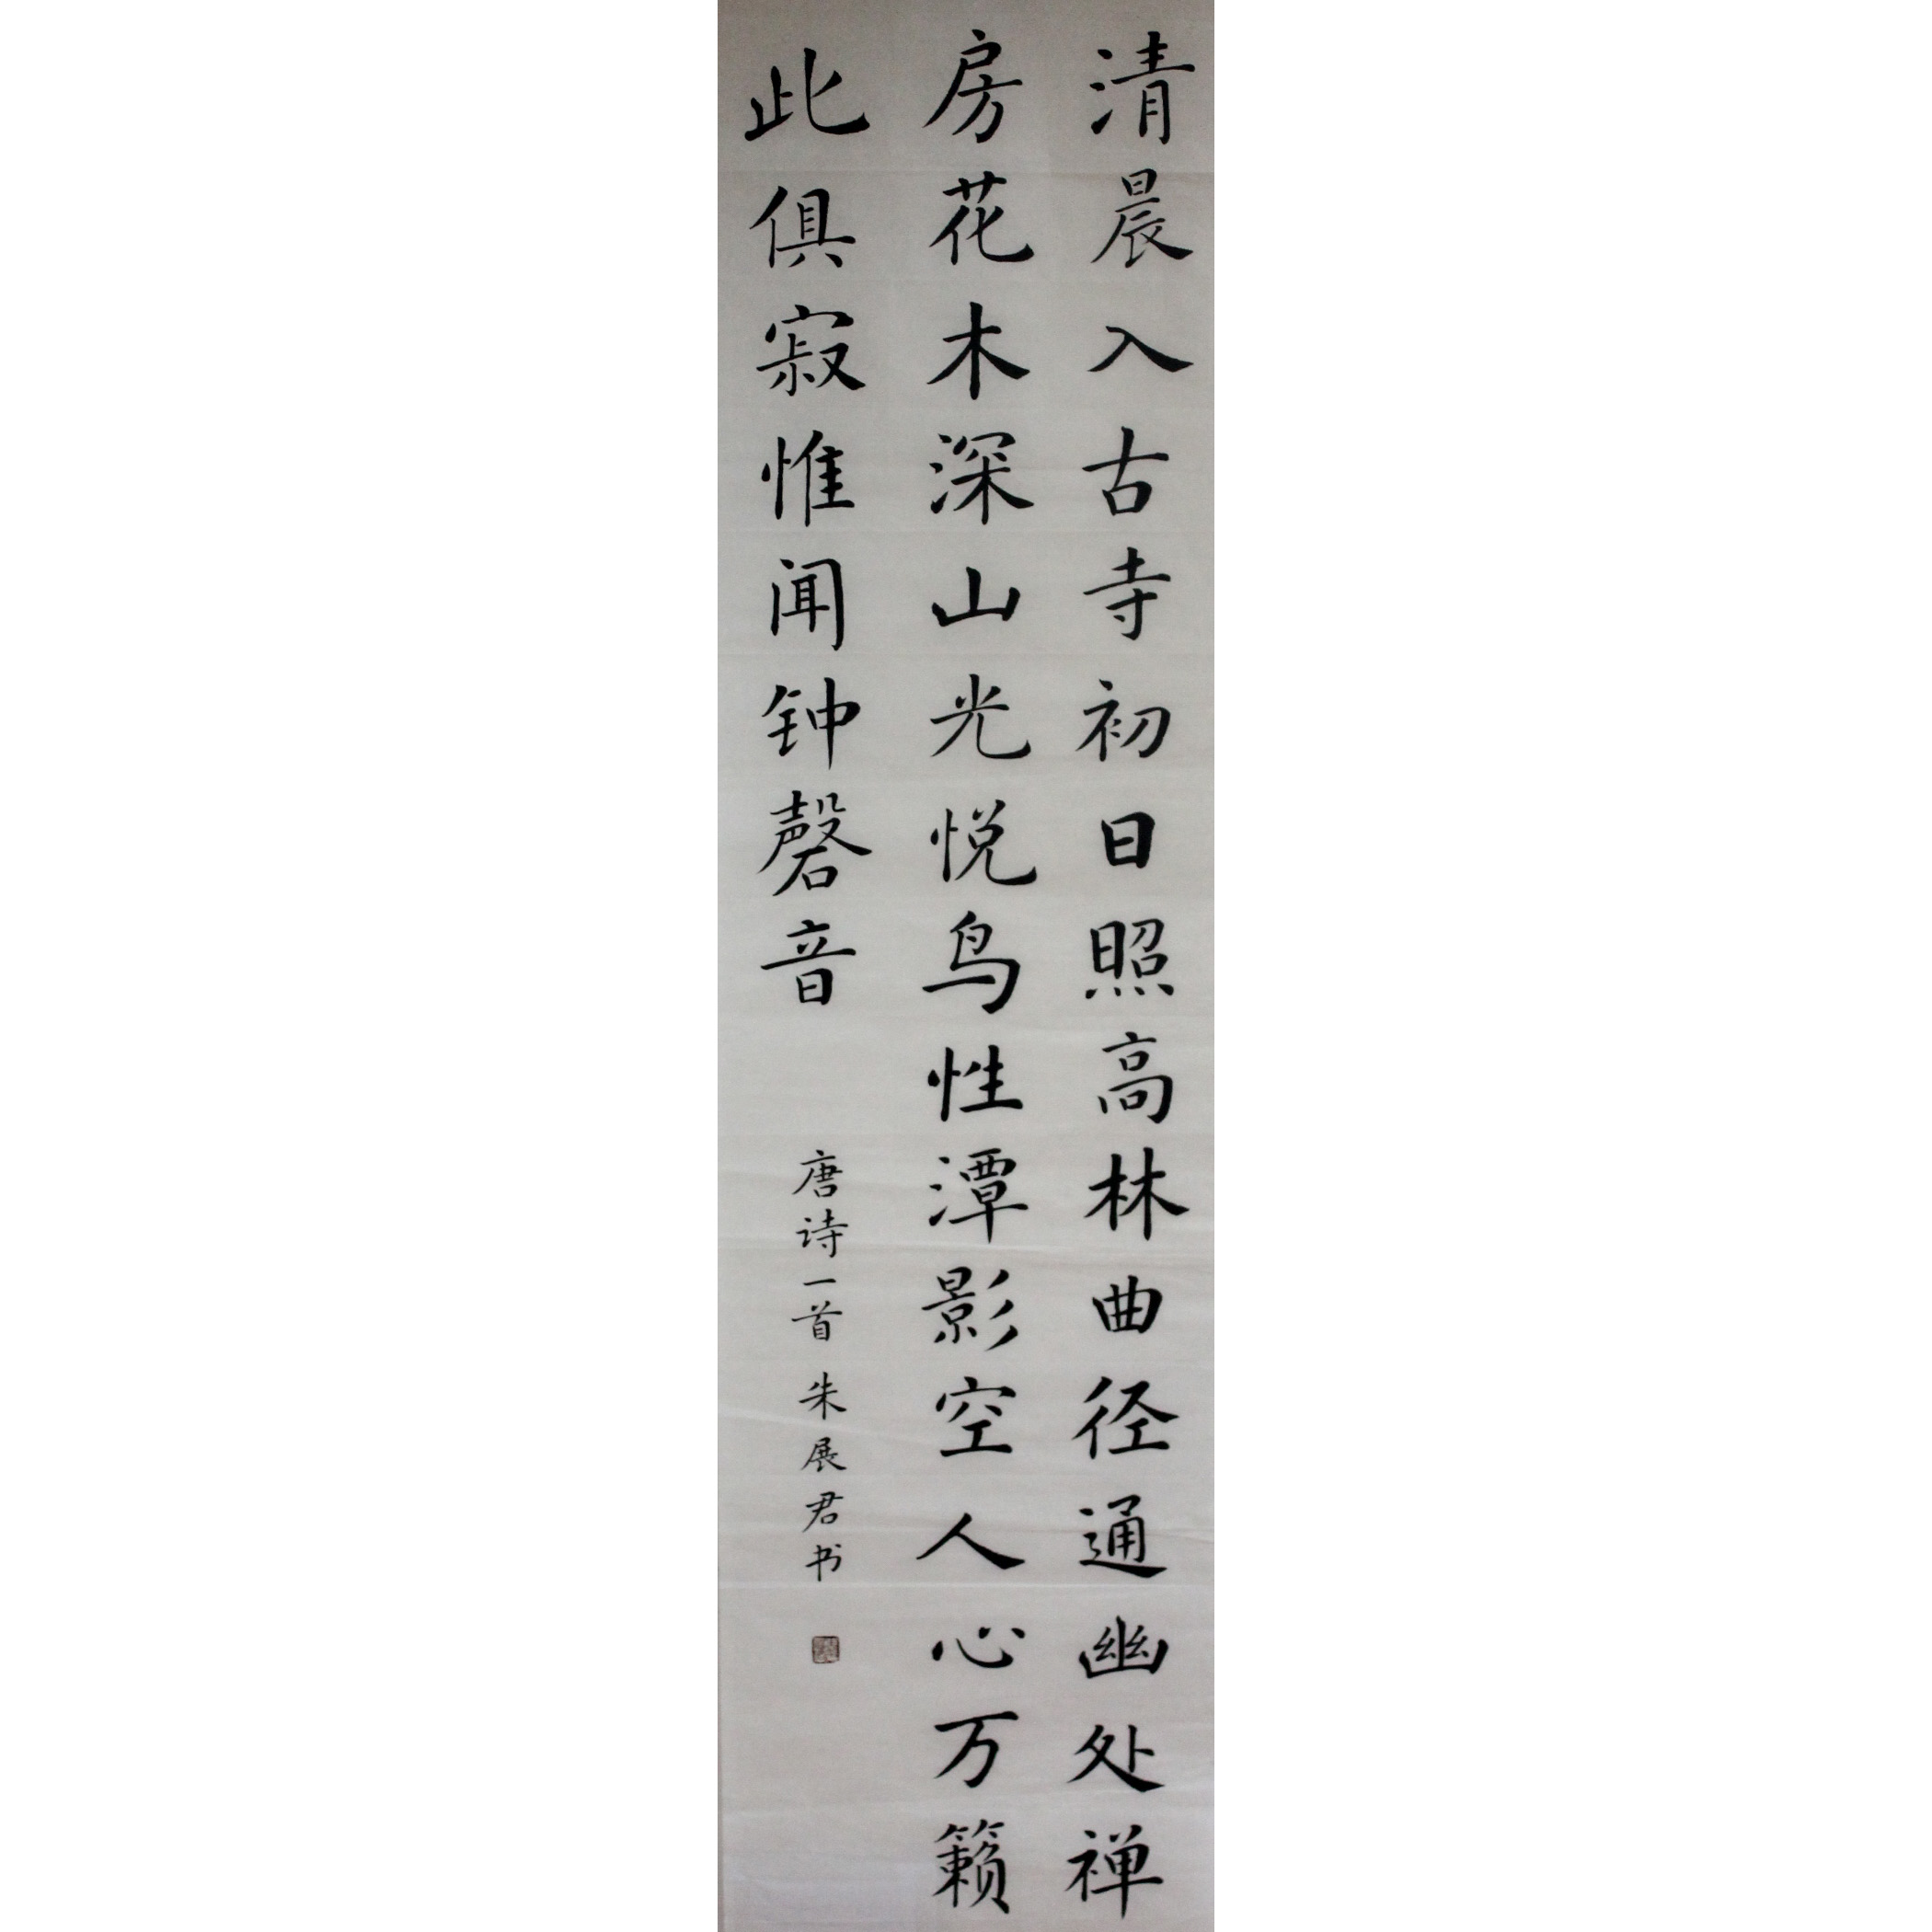 清晨入古寺初日照高林曲径通幽处禅
房花木深山光悦鸟性潭影空人心万籁
此俱寂惟闻钟磬音
唐诗一首 朱展君书